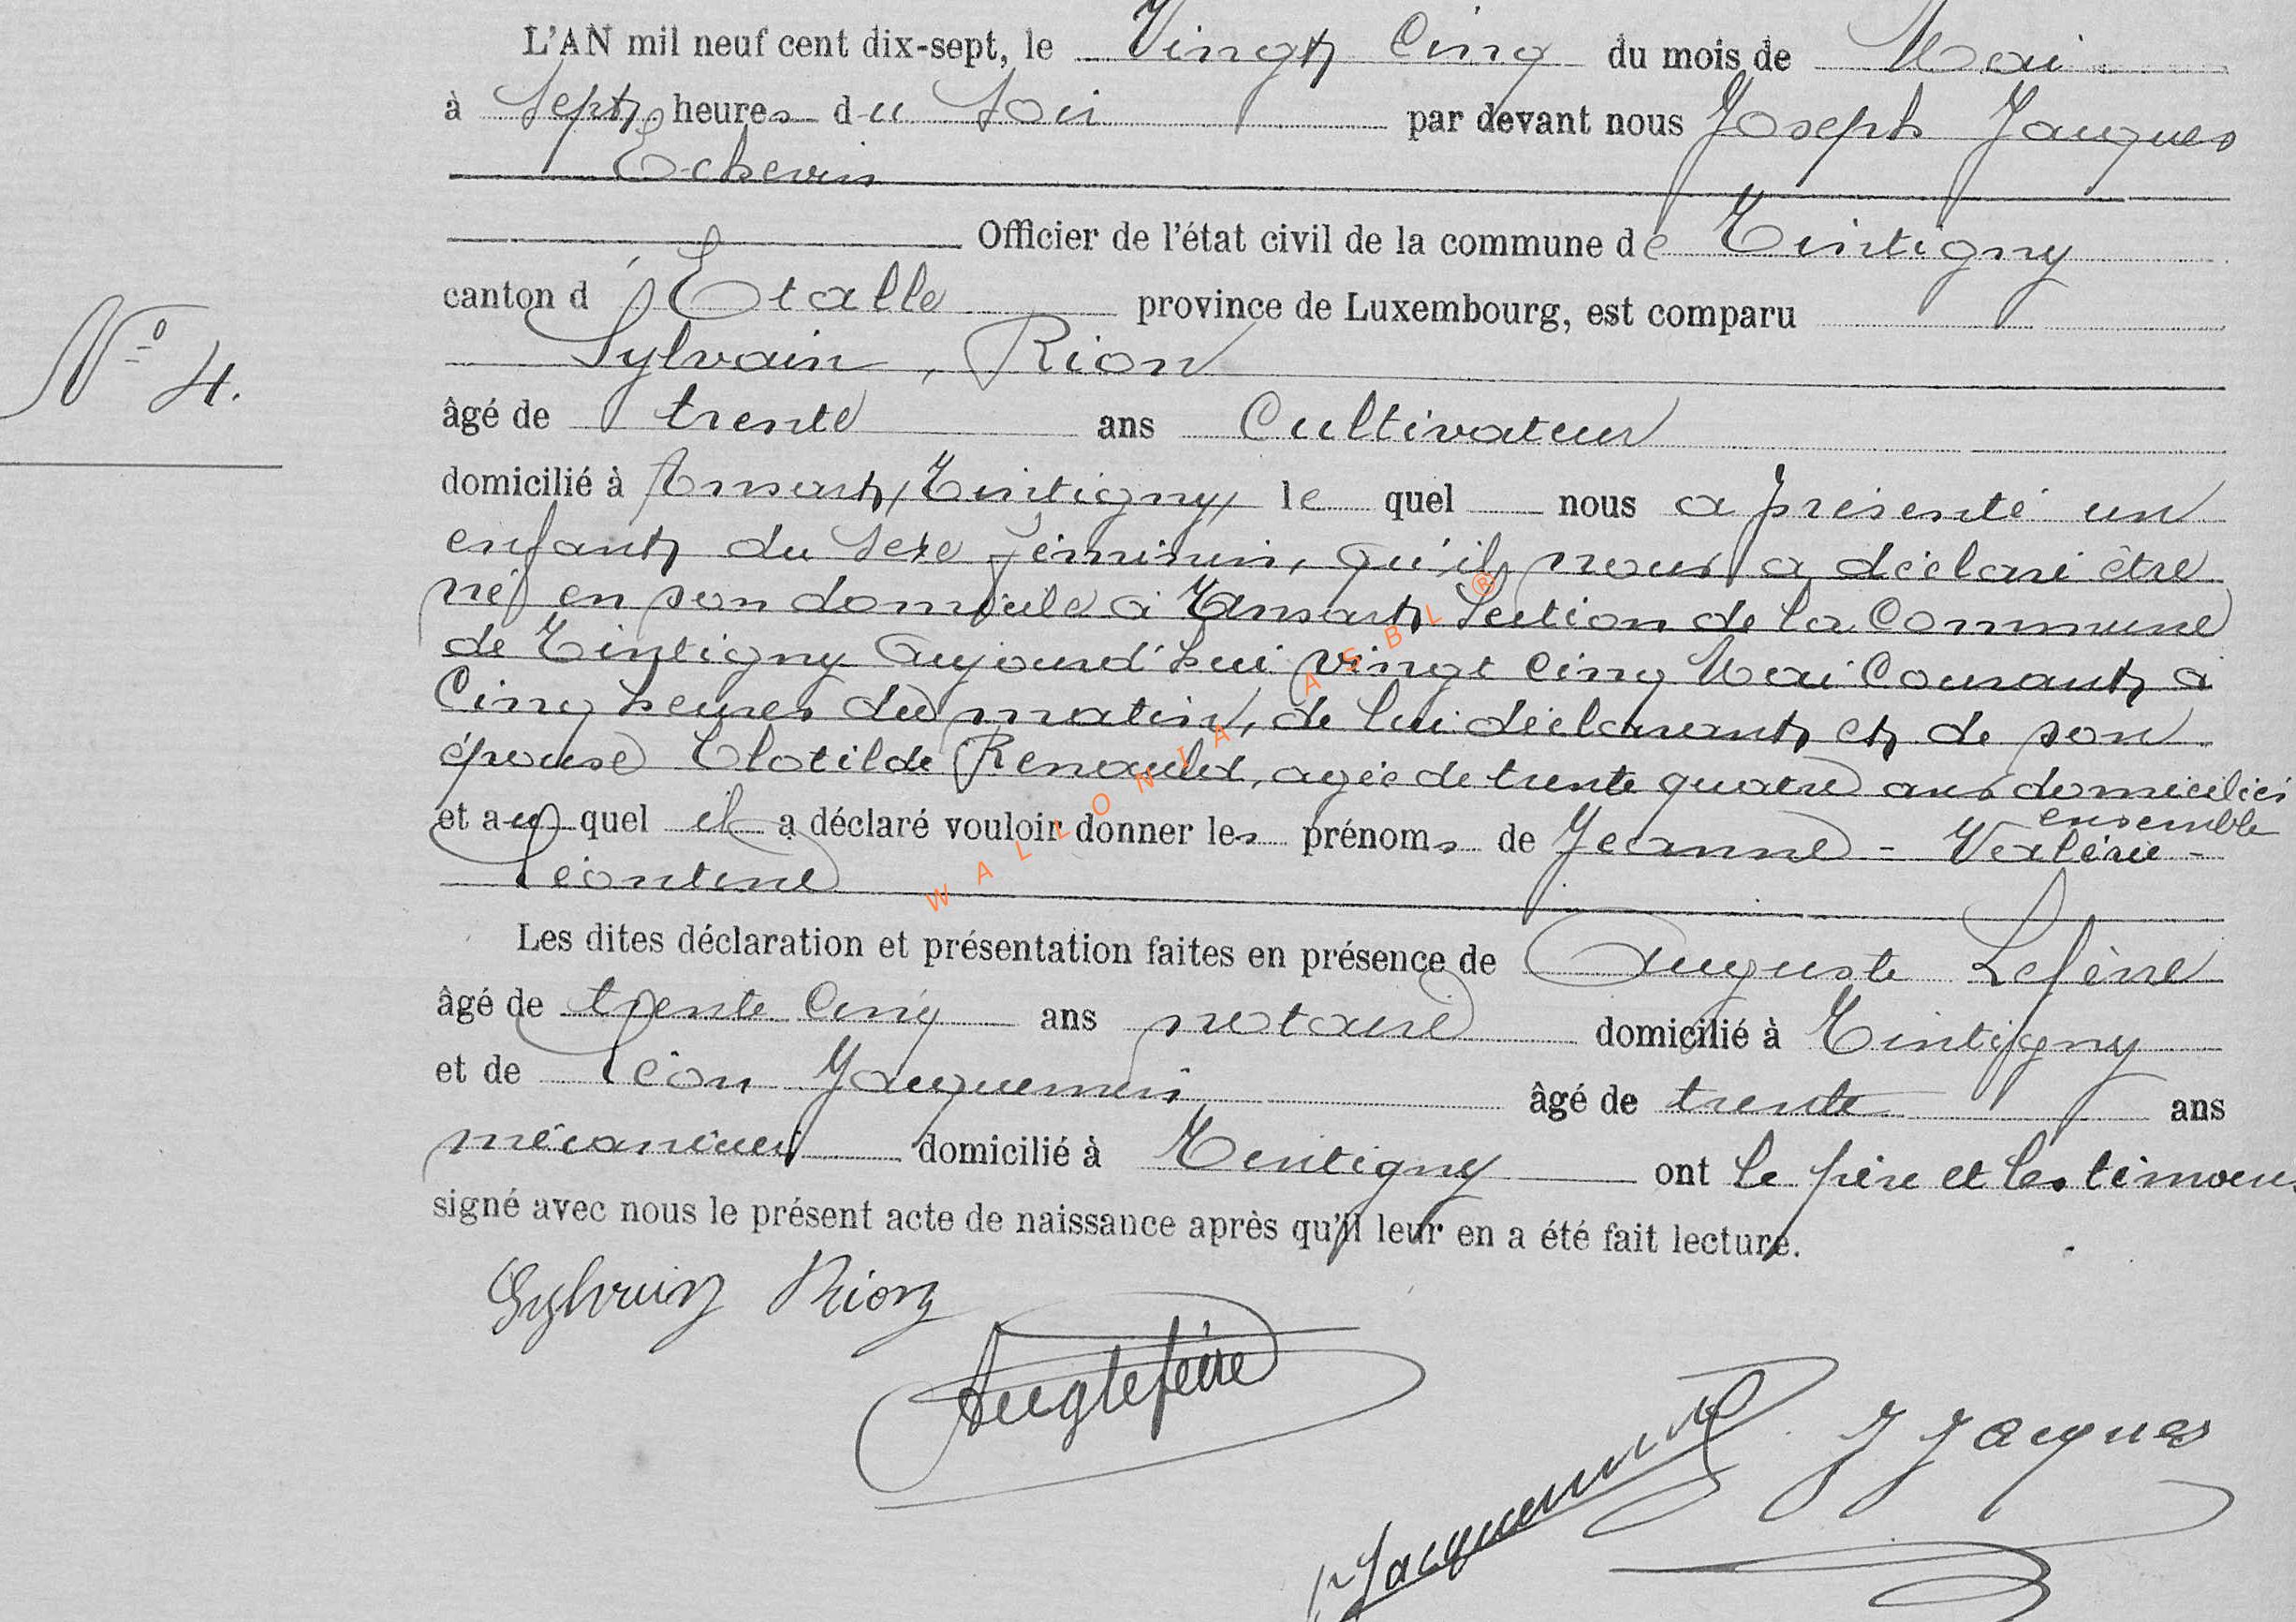 L'AN mil neuf cent dix-sept, le Vingt Cinq du mois de Mai
à Sept heures du Soir par devant nous Joseph Jacques
Echevin
Officier de l'état civil de la commune de Tintigny
canton d'Etalle province de Luxembourg, est comparu
Sylvain, Rion
N° 4.
âgé de trente ans Cultivateur
domicilié à Ansart, Tintigny, le quel nous a présenté un
enfant du sexe féminin, qu'il nous a déclaré être
né en son domicile à Ansart Section de la Commune
de Tintigny Aujourd'hui vingt cinq Mai Courant, à
Cinq heures du matin, de lui déclarant et de son
épouse Clotilde Renauld, agée de trente quatre ans domiciliés
ensemble
et au quel il a déclaré vouloir donner les prénoms de Jeanne - Valérie -
Léontine
Les dites déclaration et présentation faites en présence de Auguste Lefèvre
âgé de trente Cinq ans notaire domicilié à Tintigny
et de Léon Jacquemin âgé de trente ans
mécanicien domicilié à Tintigny ont le père et les témoins
signé avec nous le présent acte de naissance après qu'il leur en a été fait lecture.
Sylvain Rion
Aug Lefèvre
L Jacquemin
J Jacques
WALLONIA ASBL ®